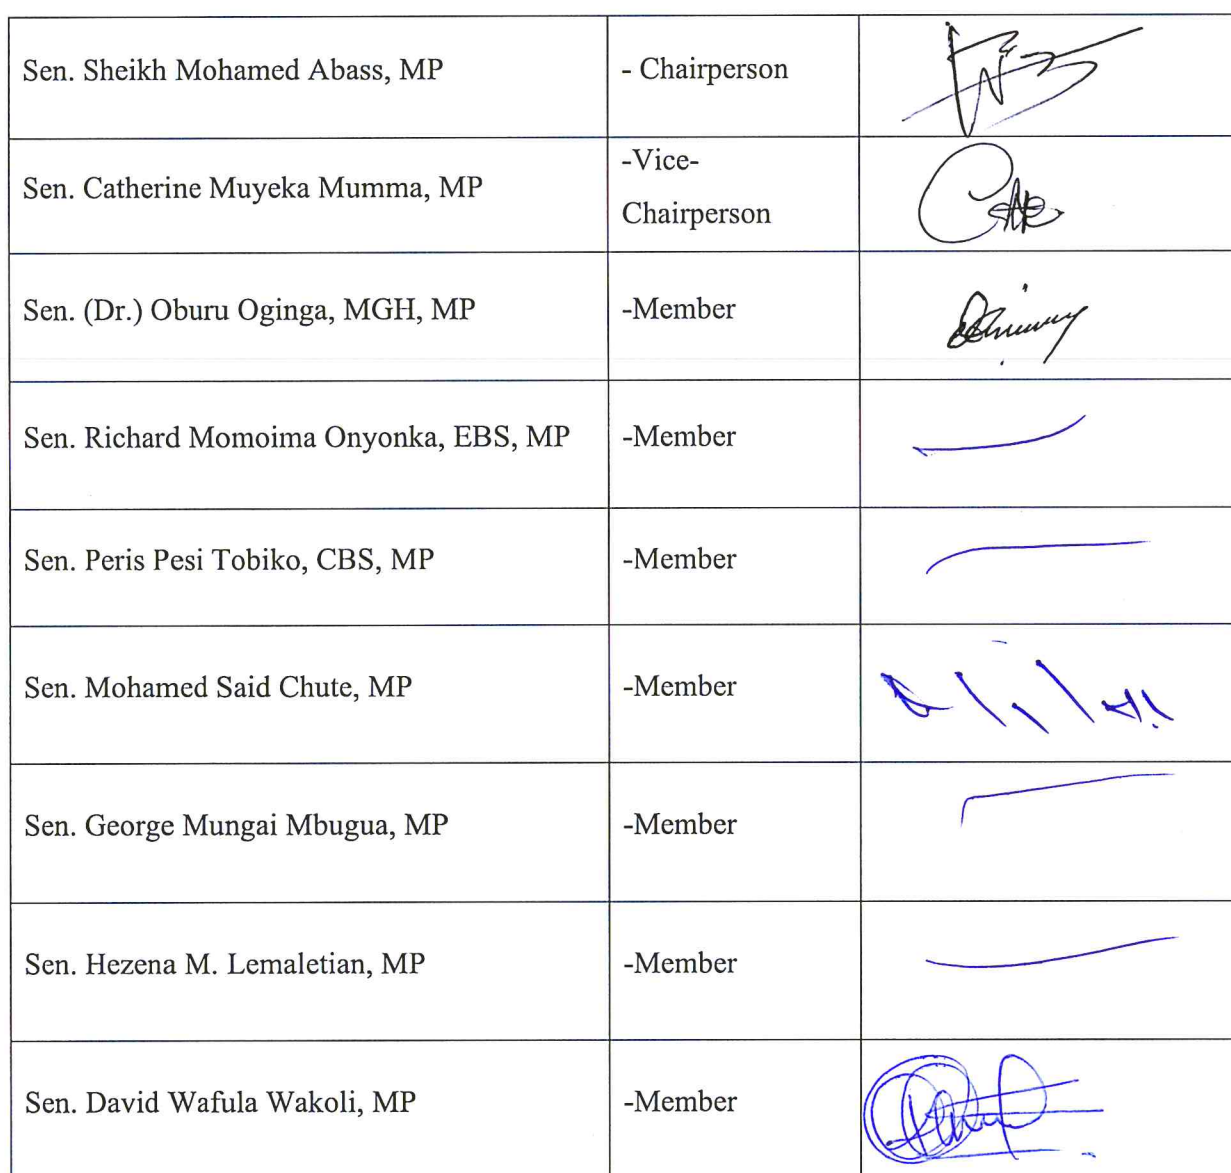 Sen. Sheikh Mohamed Abass, MP
- Chairperson
Sen. Catherine Muyeka Mumma, MP
-Vice-
Chairperson
Sen. (Dr.) Oburu Oginga, MGH, MP
-Member
Sen. Richard Momoima Onyonka, EBS, MP
-Member
Sen. Peris Pesi Tobiko, CBS, MP
-Member
Sen. Mohamed Said Chute, MP
-Member
Sen. George Mungai Mbugua, MP
-Member
Sen. Hezena M. Lemaletian, MP
-Member
Sen. David Wafula Wakoli, MP
-Member